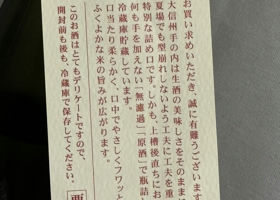 お買い求めいただき、誠に有難うございます
大信州手の内は生酒の美味しさをそのまま
夏場でも型崩れしないよう工夫に工夫を重
特別な詰め口です。しかも、上槽後直ちにお
何も手を加えない“無濾過”“原酒”で瓶詰
冷蔵庫貯蔵しています。
口当たり柔らかく、口中でやさしくフワッと
ふくよかな米の旨みが広がります。
このお酒はとてもデリケートですので、
開封前も後も、冷蔵庫で保存してください。